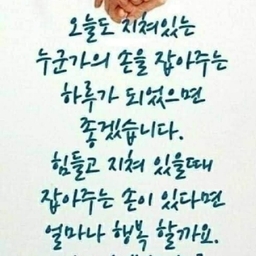 오늘도 지쳐있는
누군가의 손을 잡아주는
하루가 되었으면
좋겠습니다.
힘들고 지쳐 있을때
잡아주는 손이 있다면
얼마나 행복 할까요.